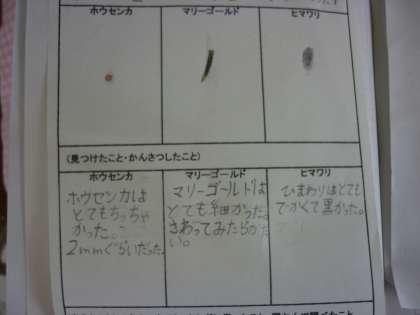 ホウセンカ
マリーゴールド
ヒマワリ
(見つけたこと・かんさつしたこと)
ホウセンカ
マリーゴールド
ヒマワリ
ホウセンカは
とてもちっちゃ
かった。
2mmぐらいだった。
マリーゴールドは
とても細かった。
さわってみたらかた
い。
ひまわりはとても
でかくて黒かった。